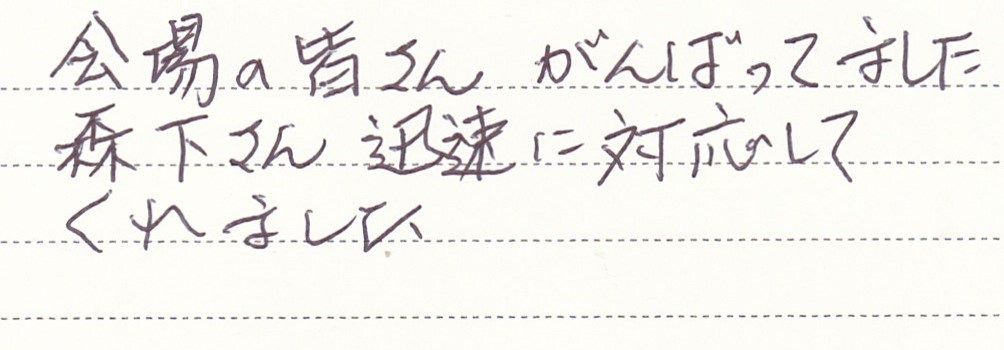 会場の皆さん がんばってました
森下さん 迅速に対応して
くれました